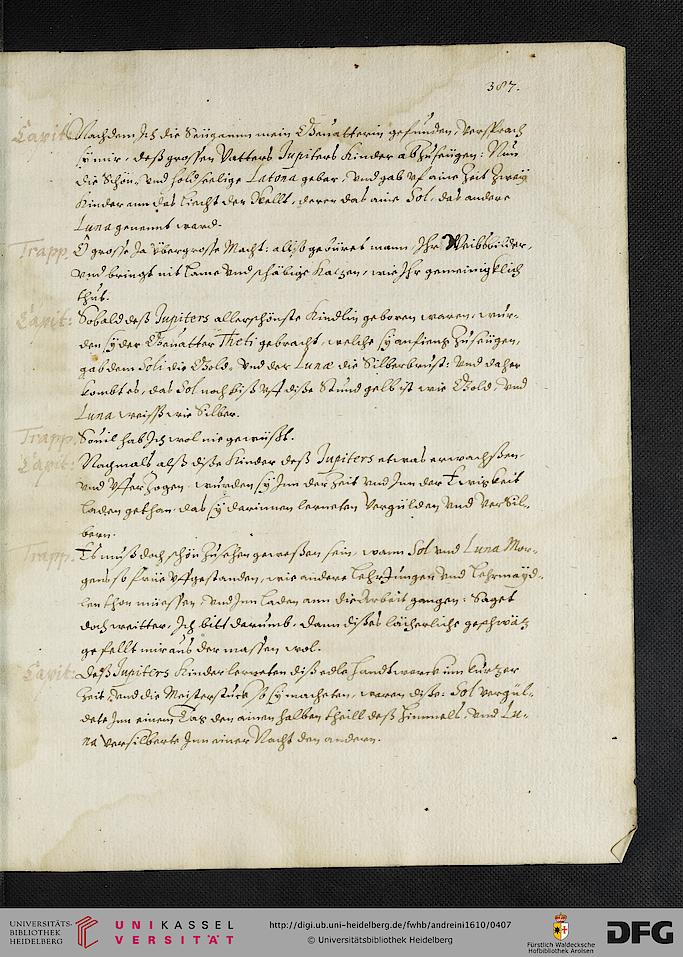 387.
Capit: Nachdem Ich die Seügamm mein Gevatterin gefunden, versprach
sy mir, deß grossen Vatters Jupiters Kinder abzuseügen: Nun
die Schön- vnd holdseelige Latona gebar, vnd gab vf aine Zeit zweÿ
Kinder ann das Liecht der Wellt, deren das aine Sol, das andere
Luna genennt ward.
Trapp. O grosse Ja übergrosse Macht: also gebüret mann, Ihr Weibsbilder,
vnd bringt nit lame vnd schäbige Katzen, wie Ihr gemeinigklich
thut.
Capit: Sobald deß Jupiters allerschönste Kindlin geboren waren, wur-
den sy der Gevatter Theti gebracht, welche sy anfieng zuseügen,
gab dem Soli die Gold- vnd der Lunæ die Silberbrust: vnd daher
kombt es, das Sol noch biß vff dise Stund gelb ist wie Gold, vnd
Luna weiß wie Silber.
Trapp. Souil hab Ich wol nie gewüßt.
Capit: Nachmals alß dise Kinder deß Jupiters etwas erwachsen-
vnd vfferzogen wurden sy Inn der Zeit vnd Inn der Ewigkeit
Laden gethan, das sy darinnen lerneten vergülden vnd versil-
bern.
Trapp. Es muß doch schön zusehen gewesen sein, wann Sol vnd Luna Mor-
gens so früe vffgestanden, wie andere LehrJungen vnd Lehrmäyd-
len thon müessen, vnd Inn Laden ann die Arbeit gangen: Saget
doch weitter, Ich bitt darumb, dann dises lächerliche geschwätz
gefellt mir aus der massen wol.
Capit: Deß Jupiters Kinder lerneten diß edle handtwerck inn kurtzer
Zeit, vnd die Meisterstuck so sy macheten, waren dise: Sol vergül-
dete Inn einem Tag den ainen halben theill deß Himmels, vnd Lu-
na versilberte Inn einer Nacht den andern.
UNIVERSITÄTS-
BIBLIOTHEK
HEIDELBERG
UNIKASSEL
VERSITÄT
http://digi.ub.uni-heidelberg.de/fwhb/andreini1610/0407
© Universitätsbibliothek Heidelberg
Fürstlich Waldecksche
Hofbibliothek Arolsen
DFG